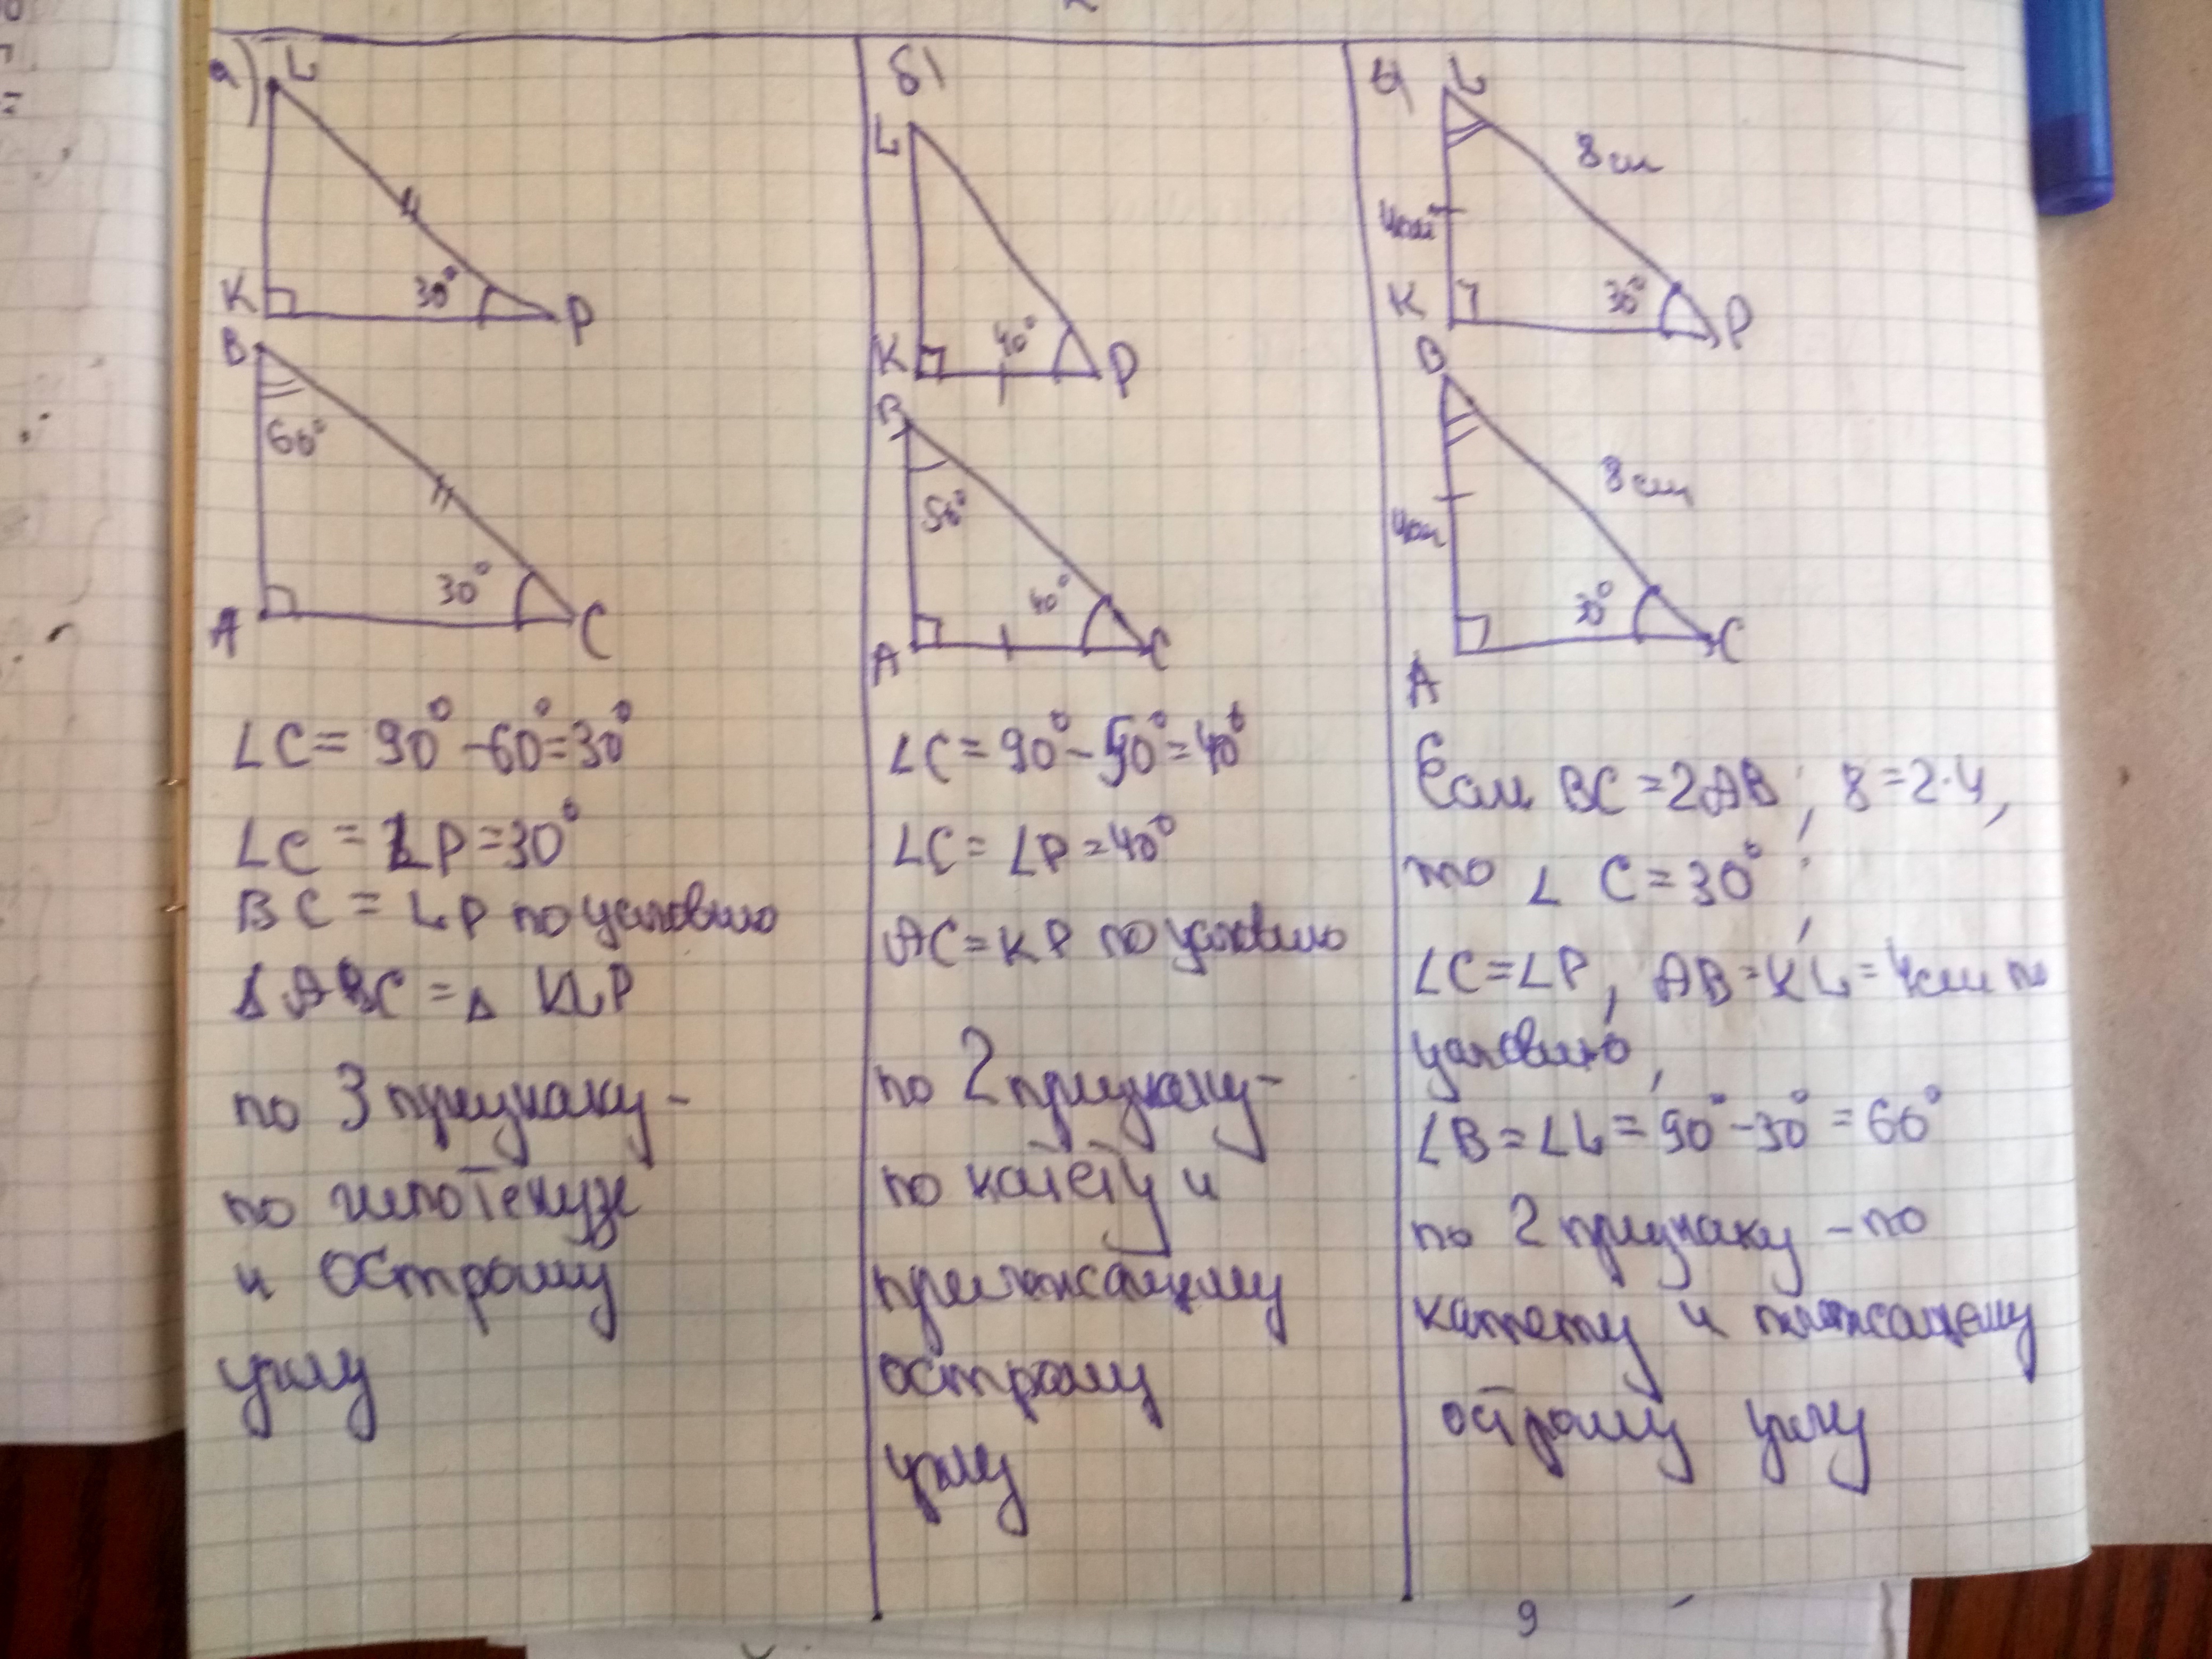 а)
L
K
30°
P
B
60°
30°
A
C
∠C = 90° - 60° = 30°
∠C = ∠P = 30°
BC = LP по условию
Δ ABC = Δ KLP
по 3 признаку -
по гипотенузе
и острому
углу
б)
L
K
40°
P
B
50°
40°
A
C
∠C = 90° - 50° = 40°
∠C = ∠P = 40°
AC = KP по условию
по 2 признаку -
по катету и
прилежащему
острому
углу
L
4см
8 см
K
30°
P
B
4см
8 см
A
30°
C
Если BC = 2AB, 8 = 2·4,
то ∠ C = 30°
∠C = ∠P, AB = KL = 4см п
условию
∠B = ∠L = 90° - 30° = 60°
по 2 признаку - по
катету и прилежащему
острому углу
9